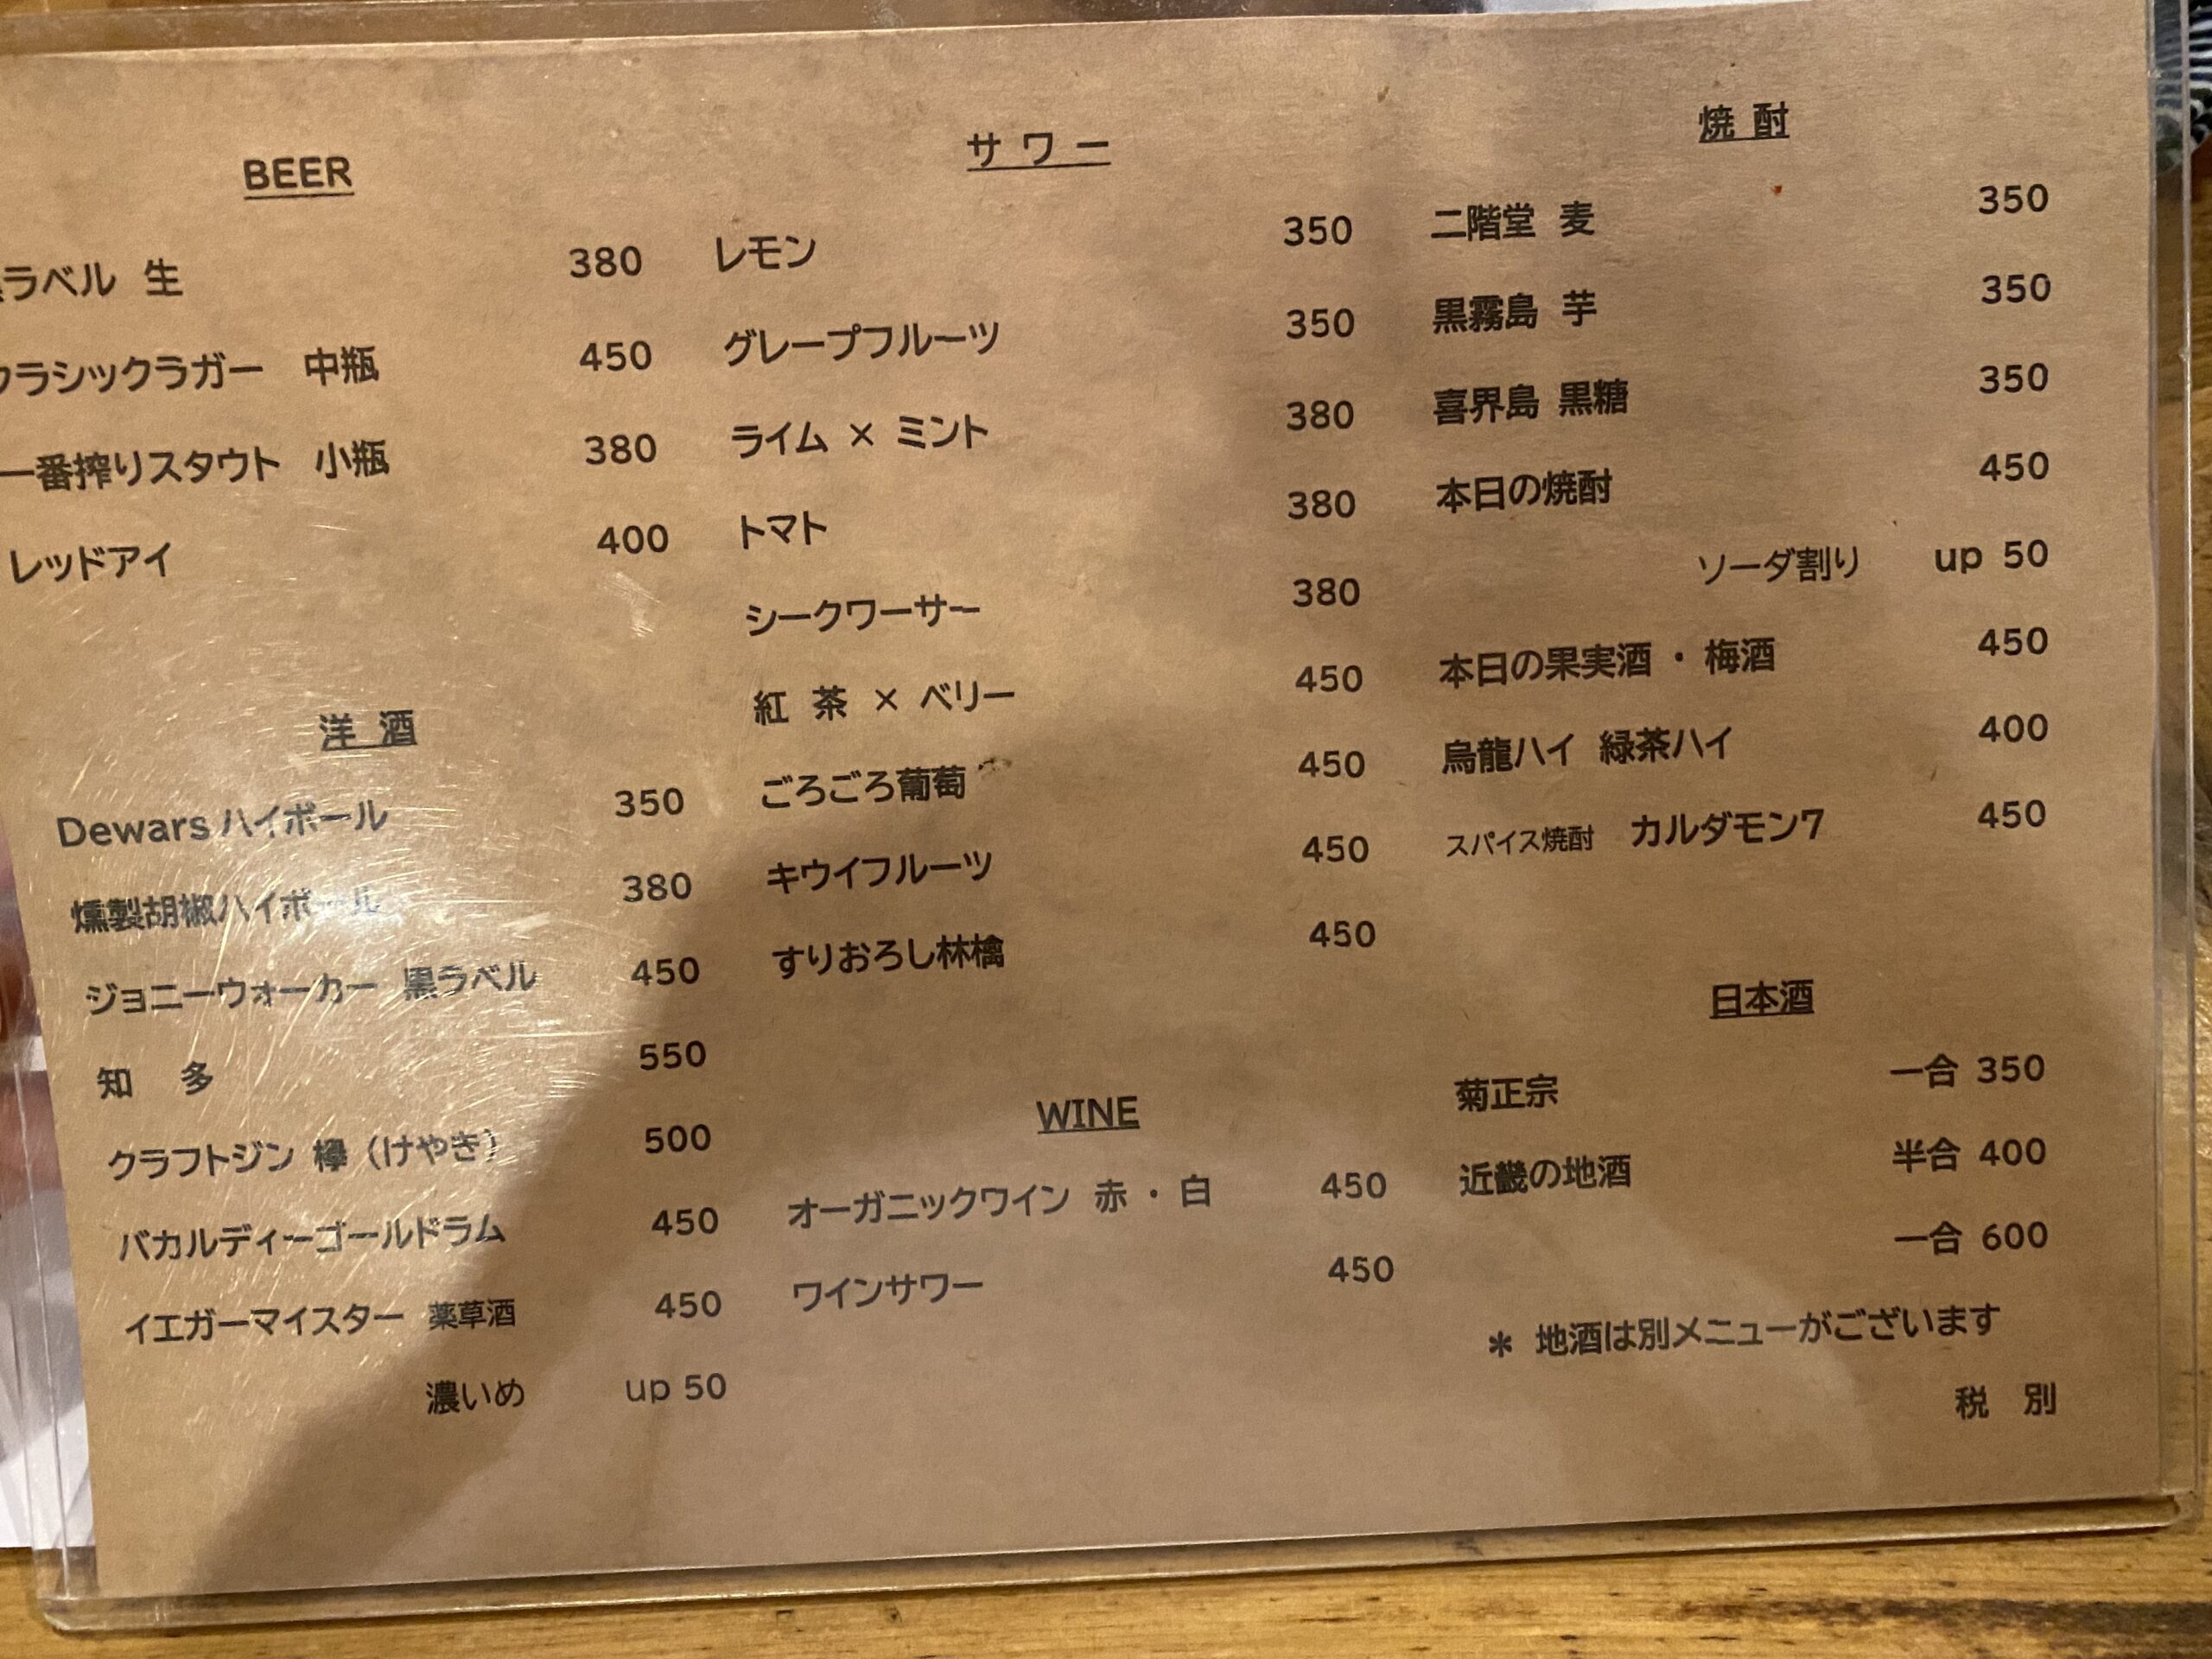 BEER
ラベル 生 380
クラシックラガー 中瓶 450
一番搾りスタウト 小瓶 380
レッドアイ 400
洋 酒
Dewars ハイボール 350
燻製胡椒ハイボール 380
ジョニーウォーカー 黒ラベル 450
知 多 550
クラフトジン 欅（けやき） 500
バカルディーゴールドラム 450
イエガーマイスター 薬草酒 450
濃いめ up 50
サ ワ ー
レモン 350
グレープフルーツ 350
ライム × ミント 380
トマト 380
シークワーサー 380
紅 茶 × ベリー 450
ごろごろ葡萄 450
キウイフルーツ 450
すりおろし林檎 450
WINE
オーガニックワイン 赤 ・ 白 450
ワインサワー 450
焼 酎
二階堂 麦 350
黒霧島 芋 350
喜界島 黒糖 350
本日の焼酎 450
ソーダ割り up 50
本日の果実酒 ・ 梅酒 450
烏龍ハイ 緑茶ハイ 400
スパイス焼酎 カルダモン7 450
日本酒
菊正宗 一合 350
近畿の地酒 半合 400
一合 600
＊ 地酒は別メニューがございます
税 別